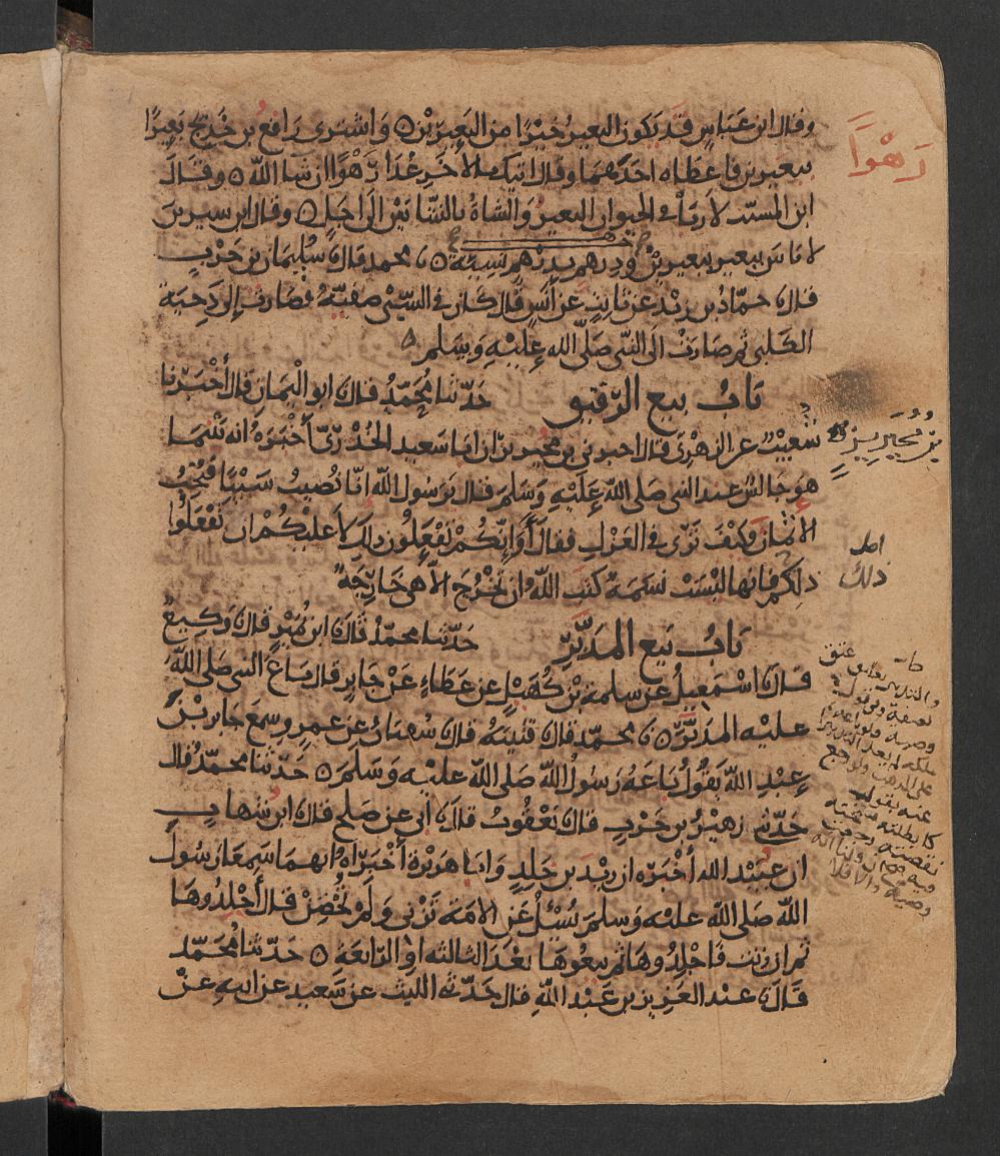 وقال ابن عباس قد يكون البعير خيرا من البعيرين ه واشترى رافع بن خديج بعيرا
ببعيرين فاعطاه احدهما وقال اتيك بالاخر غدا رهوا ان شا الله ه وقال
ابن المسيب لا ربا في الحيوان البعير والشاة بالشاتين الى اجل ه وقال ابن سيرين
لا باس ببعير ببعيرين ودرهم بدرهم نسيئة ه نا محمد قال نا سليمان بن حرب
قال نا حماد بن زيد عن ثابت عن أنس قال كان في السبي صفية فصارت إلى دحية
الكلبي ثم صارت الى النبي صلى الله عليه وسلم ه
باب بيع الرقيق حدثنا محمد قال نا ابو اليمان قال أخبرنا
شعيب عن الزهري قال اخبرني بن محيريز ان ابا سعيد الخدري أخبره انه بينما
هو جالس عند النبي صلى الله عليه وسلم قال يرسول الله انا نصيب سبيا فنحب
الاثمان وكيف ترى في العزل فقال أوإنكم تفعلون ذلك لا عليكم ان تفعلوا
ذلكم فانها ليست نسمة كتب الله ان تخرج الا هي خارجة
باب بيع المدبر حدثنا محمد قال نا ابن نمير قال نا وكيع
قال نا اسمعيل عن سلمة بن كهيل عن عطاء عن جابر قال باع النبي صلى الله
عليه المدبر ه نا محمد قال نا قتيبة قال نا سفيان عن عمرو سمع جابر بن
عبد الله يقول باعه رسول الله صلى الله عليه وسلم ه حدثنا محمد قال
حدثني زهير بن حرب قال نا يعقوب قال نا أبي عن صلح قال نا ابن شهاب
ان عبيد الله أخبره ان زيد بن خلد وابا هريرة أخبراه انهما سمعا رسول
الله صلى الله عليه وسلم يسئل عن الامة تزني ولم تحصن قال أجلدوها
ثم ان زنت فاجلدوها ثم بيعوها بعد الثالثة او الرابعة ه حدثنا محمد
قال نا عبد العزيز بن عبد الله قال حدثني الليث عن سعيد عن ابيه عن
رهوا
بن محيريز
اصل
ذلك